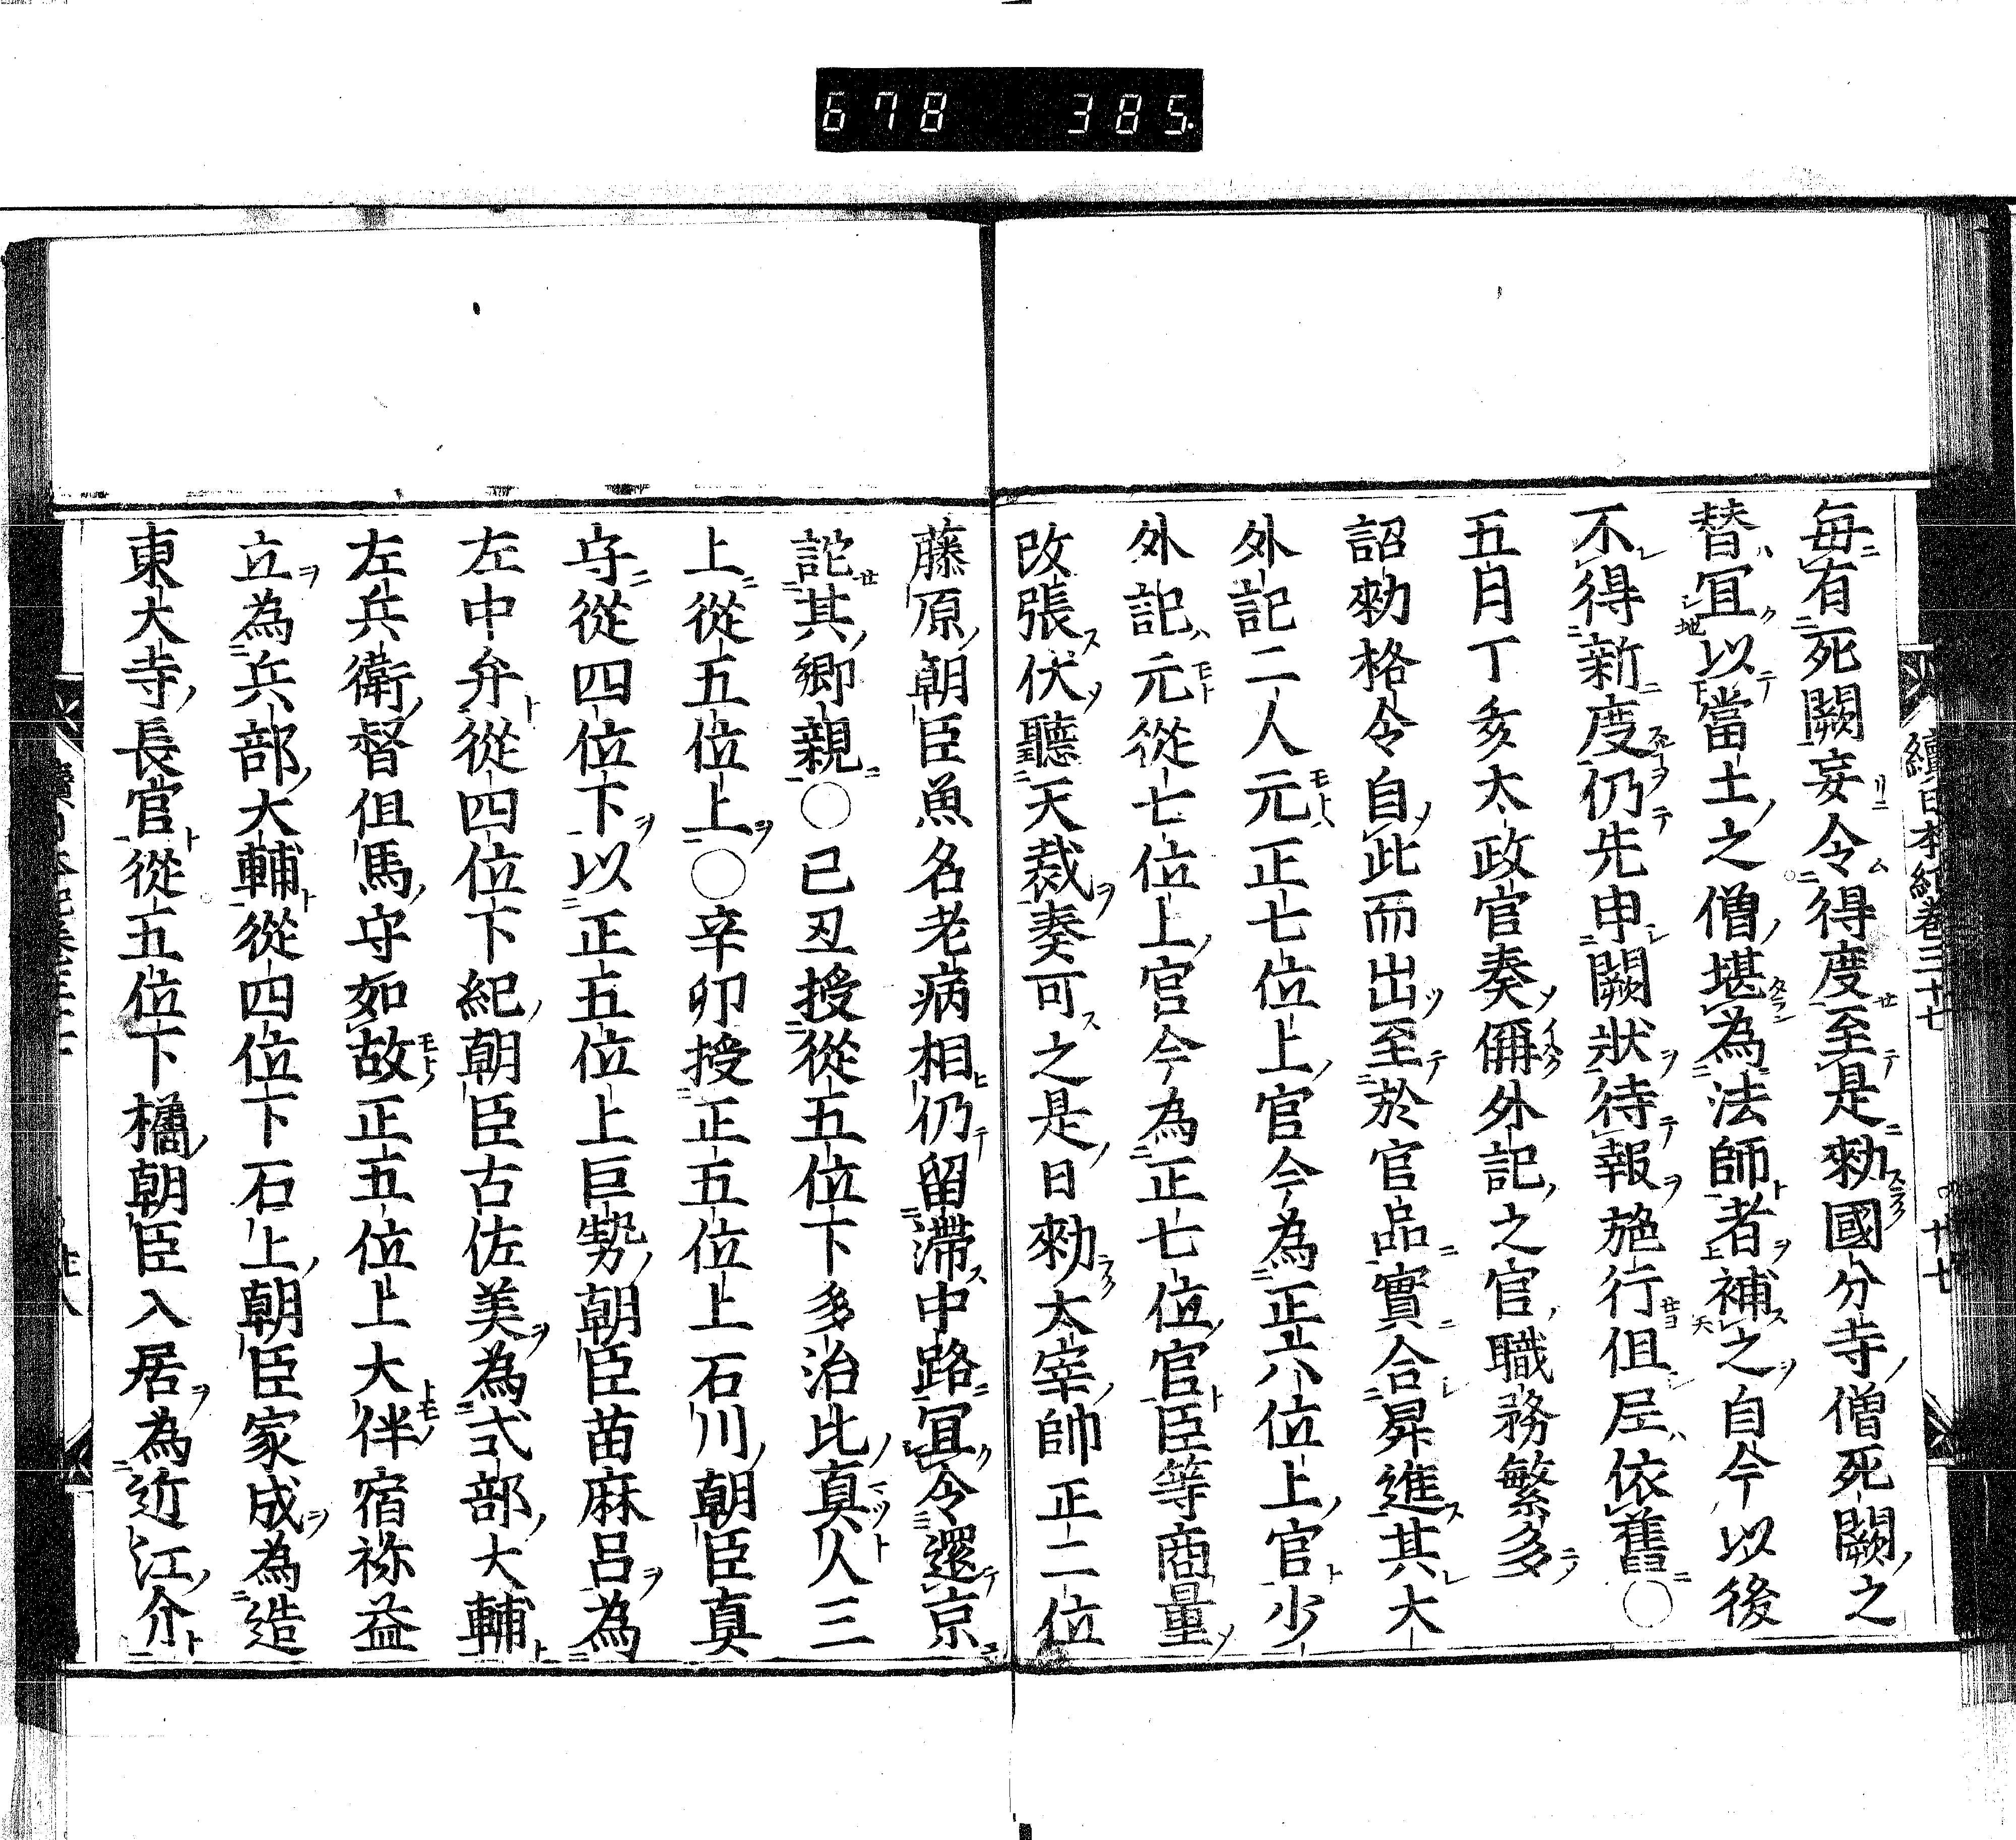 678 385.
續日本紀卷三十七 廿七
每有死闕妄令得度至是勑國分寺僧死闕之
替冝以當土之僧堪為法師者補之自今以後
不得新度仍先申闕狀待報施行但尼依舊〇
五月丁亥太政官奏偁外記之官職務繁多
詔勑格令自此而出至於官品實合昇進其大
外記二人元正七位上官今為正六位上官少
外記元從七位上官今為正七位官臣等商量
改張伏聽天裁奏可之是日勑太宰帥正二位
藤原朝臣魚名老病相仍留滯中路冝令還京
託其鄉親〇己丑授從五位下多治比真人三
上從五位上〇辛卯授正五位上石川朝臣真
守從四位下以正五位上巨勢朝臣苗麻呂為
左中弁從四位下紀朝臣古佐美為式部大輔
左兵衛督但馬守如故正五位上大伴宿祢益
立為兵部大輔從四位下石上朝臣家成為造
東大寺長官從五位下橘朝臣入居為近江介